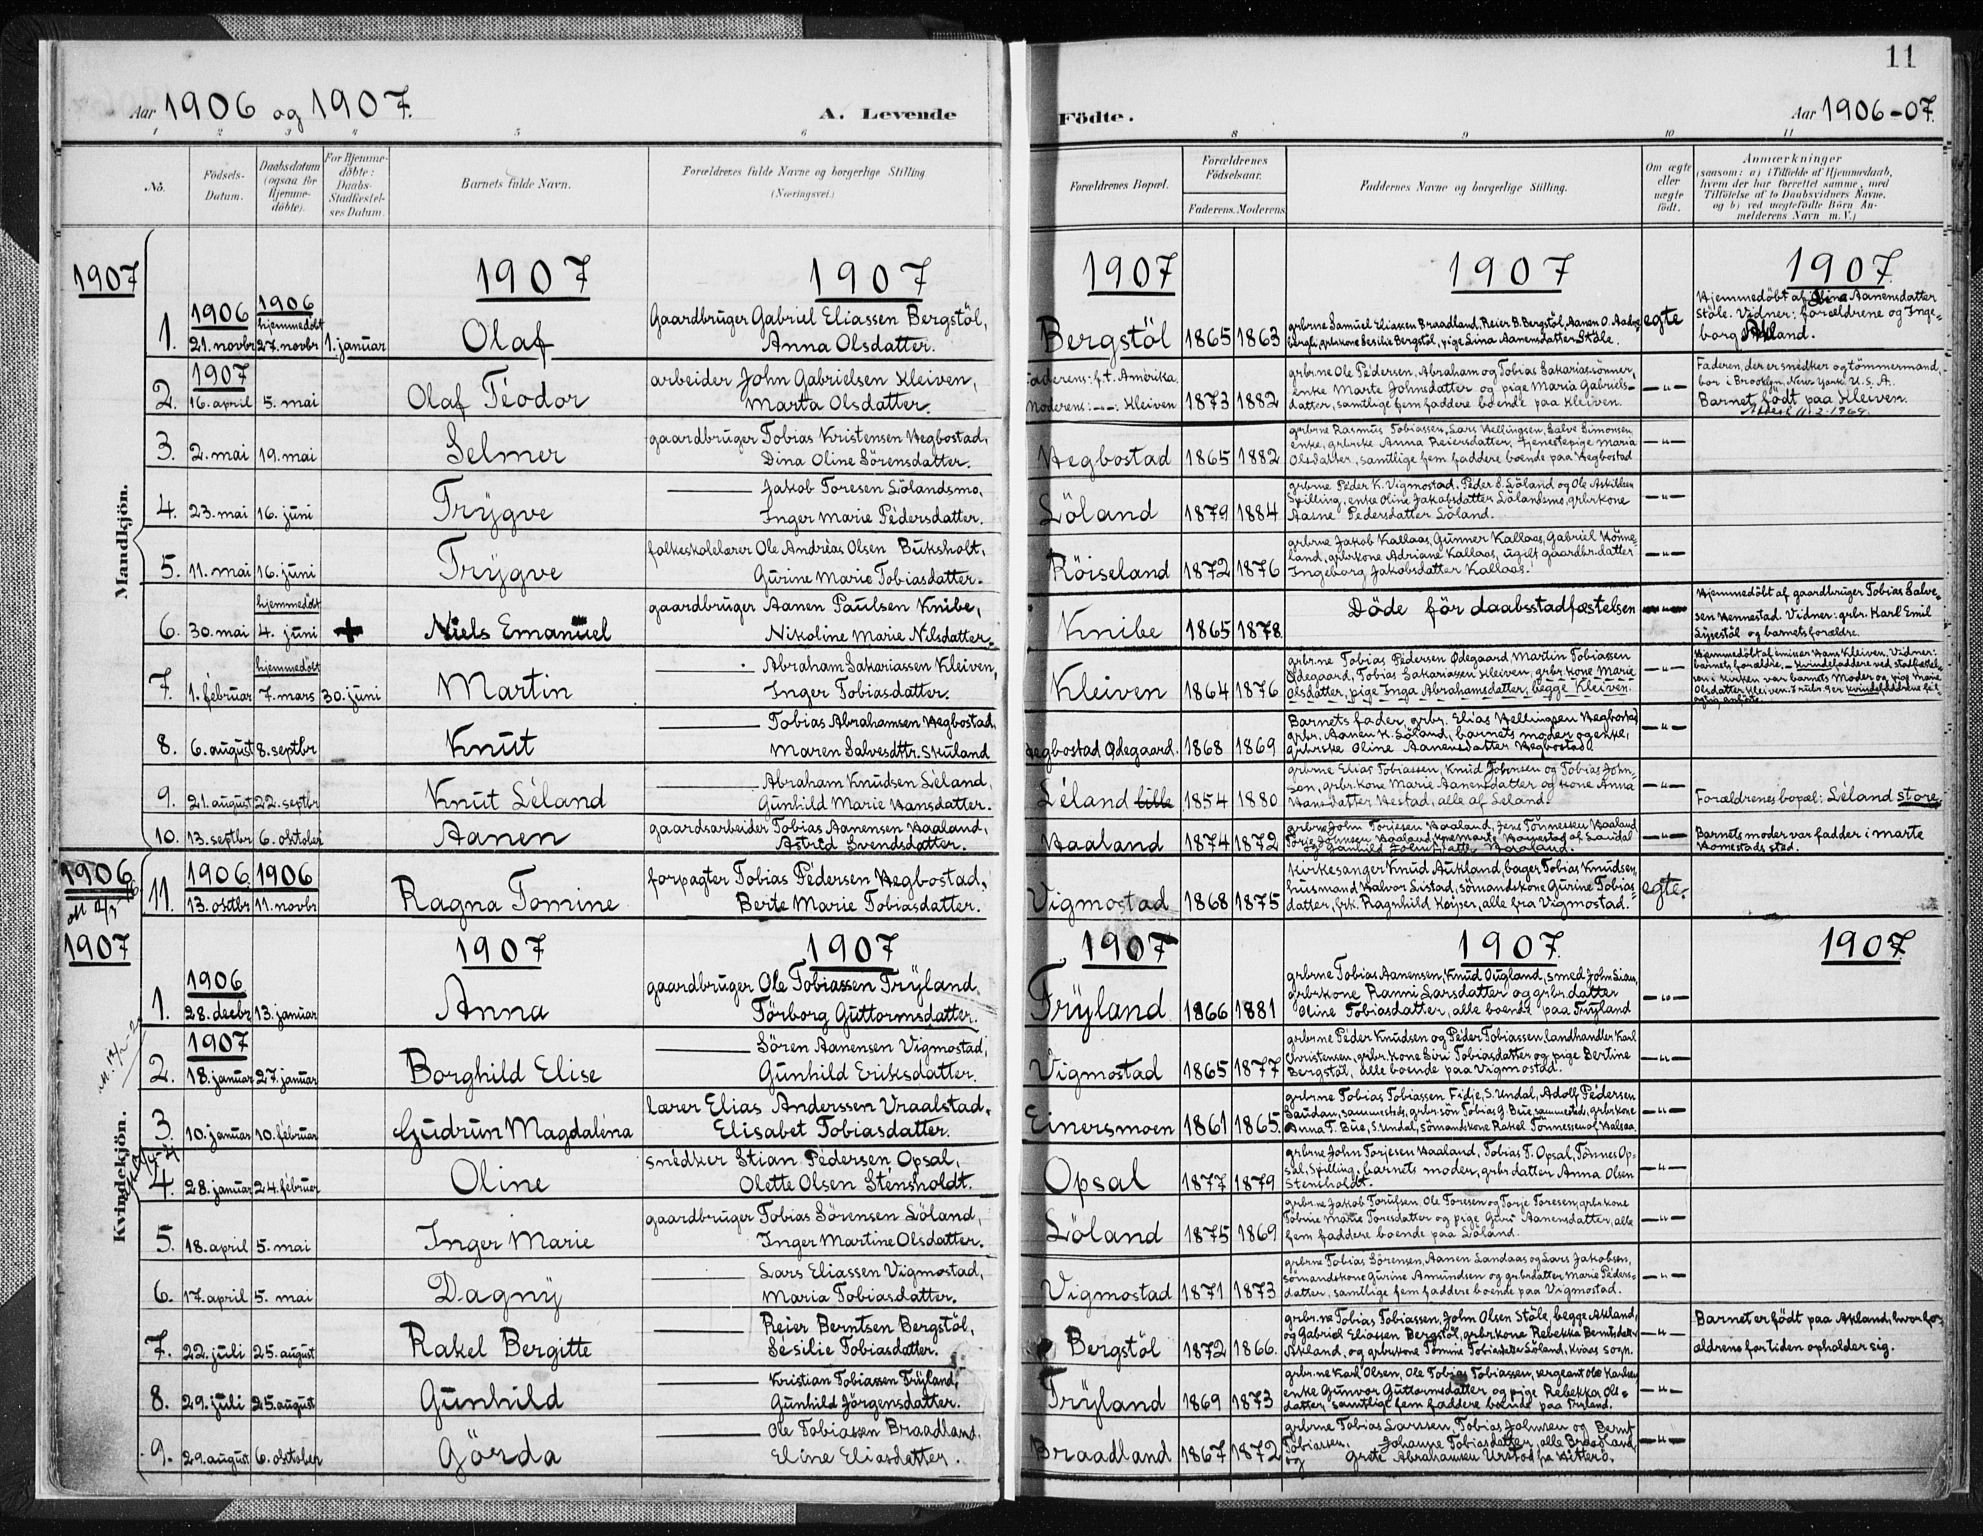 11
Aar 1906 og 1907. A. Levende Födte. Aar 1906-07.
1 2 3 4 5 6 8 9 10 11
No. Födsels-Datum. Daabsdatum (ogsaa for Hjemme-döbte). For Hjemme-döbte: Daabs-Stadfæstel-ses Datum. Barnets fulde Navn. Forældrenes fulde Navne og borgerlige Stilling (Næringsvei.) Forældrenes Bopæl. Forældrenes Födselsaar. Faderens. Moderens. Faddernes Navne og borgerlige Stilling. Om ægte eller uægte födt. Anmærkninger
(saasom: a) i Tilfælde af Hjemmedaab, hvem der har forrettet samme, med Tilföielse af to Daabsvidners Navne, og b) ved uægtefödte Börn An-melderens Navn m. V.)
1907 1907 1907 1907 1907 1907
Mandkjön.
1. 1906 21. novbr 1906 hjemmedöbt 27. novbr 1. januar Olaf Gaardbruger Gabriel Eliassen Bergstöl,
Anna Olsdatter. Bergstöl 1865 1863 grbrne Samuel Eliassen Braadland, Reier B. Bergstöl, Aanen O.
grbrkone Sesilie Bergstöl, pige Lina Aanensdatter Ståle. egte Hjemmedöbt af Aanensdatter
Ståle. Vidner: forældrene og Inge-
borg Akland.
2. 1907 16. april 5. mai Olaf Téodor arbeider John Gabrielsen Kleiven,
Marta Olsdatter. Faderens: f.t. Amerika.
Moderens: -"-: Kleiven 1873 1882 grbr.ne Ole Pedersen, Abraham og Tobias Sakariassønner,
enke Marte Johnsdatter og pige Maria Gabriels-
datter, samtlige fem faddere boende paa Kleiven. -"- Faderen, der er snedker og tömmermand,
bor i Brooklyn, New York, U. S. A.
Barnet födt paa Kleiven.
3. 2. mai 19. mai Selmer gaardbruger Tobias Kristensen Hegbostad,
Dina Oline Sörensdatter. Hegbostad 1865 1882 grbrne Rasmus Tobiassen, Lars Hellingsen, Salve Simonsen,
enke, grbrske Anna Reiersdatter, tjenestepige Maria
Olsdatter, samtlige fem faddere boende paa Hegbostad -"-
4. 23. mai 16. juni Trÿgve Jakob Toresen Lölandsmo,
Inger Marie Pédersdatter. Löland 1879 1884 grbrne Péder K. Vigmostad, Péder S. Löland og Ole Askildsen
Spilling, enke Oline Jakobsdatter Lölandsmo, grbrkone
Aasne Pedersdatter Löland. -"-
5. 11. mai 16. juni Trÿgve folkeskolelærer Ole Andréas Olsen Buksholt,
Gurine Marie Tobiasdatter. Röiseland 1872 1876 grbrne Jakob Kallaas, Gunner Kallaas, Gabriel
grbrkone Adriane Kallaas, ugift gaardbr.datter
Ingeborg Jakobsdatter Kallaas. -"-
6. 30. mai hjemmedöbt 4. juni + Niels Emanuel gaardbruger Aanen Paulsen Knibe,
Nikoline Marie Nilsdatter. Knibe 1865 1878. Döde för daabsstadfæstelsen -"- Hjemmedöbt af gaardbruger Tobias Salve-
sen Hennestad. Vidner: grbr. Karl Emil
og barnets forældre.
7. 1. februar hjemmedöbt 7. mars 30. juni Martin Abraham Sakariassen Kleiven,
Inger Tobiasdatter. Kleiven 1864 1876 grbr.ne Tobias Pédersen Ødegaard, Martin Tobiassen
Ødegaard, Tobias Sakariassen Kleiven, grbr.kone Marie
Olsdatter, pige Inga Abrahamsdatter, begge Kleiven. -"- Hjemmedöbt af Hans Kleiven. Vidner:
barnets forældre. – kvindefaddere ved stadfæstel-
sen i kirken var barnets Moder og pige Marie
Olsdatter Kleiven. I rubr. 9 er kvindefadderne
anförte.
8. 6. august 8. septbr Knut Tobias Abrahamsen Hegbostad,
Maren Salvesdttr. Skuland Hegbostad Ødegaard. 1868 1869 Barnets fader, grbr. Elias Hellingsen Hegbostad,
grbr. Aanen K. Löland, barnets moder og enke,
grbrske Oline Aanensdatter Hegbostad. -"-
9. 21. august 22. septbr Knut Léland Abraham Knudsen Léland,
Gunhild Marie Hansdatter. Léland lille 1854 1880 grbrne Elias Tobiassen, Knud Johnsen og Tobias John-
sen, grbr.kone Marie Aanensdatter og kone Anna
Hansdatter Hestad, alle af Leland. -"- Forældrenes bopæl: Léland store.
10. 13. septbr 6. oktober Aanen gaardsarbeider Tobias Aanensen Haaland,
Astrid Svendsdatter. Haaland 1874 1872 grbrne John Torjesen Haaland, Jens Tönnessen Haaland
-"- Barnets moder var fadder i Marte
Homestads sted.
1906 11. 1906 13. oktbr 1906 11. novbr Ragna Tomine forpagter Tobias Pédersen Hegbostad,
Berte Marie Tobiasdatter. Vigmostad 1868 1875 Kirkesanger Knud Aukland, bager Tobias Knudsen,
husmand Halvor Sistad, sömandskone Gurine Tobias-
datter, frk. Ragnhild Köyser, alle fra Vigmostad. egte.
1907 1907 1907 1907 1907 1907
Kvindekjön.
1. 1906 28. decbr 13. januar Anna gaardbruger Ole Tobiassen Trÿland,
Törborg Guttormsdatter. Trÿland 1866 1881 grbrne Tobias Aanensen, Knud Ougland, smed John
grbrkone Ranni Larsdatter og grbr.datter
Oline Tobiasdatter, alle boende paa Tryland -"-
2. 1907 18. januar 27. januar Borghild Elise Sören Aanensen Vigmostad,
Gunhild Eriksdatter. Vigmostad 1865 1877 grbrne Péder Knudsen og Péder Tobiassen, landhandler Karl
Christensen, grbr.kone Siri Tobiasdatter og pige Bertine
Bergstöl, alle boende paa Vigmostad. -"-
3. 10. januar 10. februar Gudrun Magdaléna lærer Elias Anderssen Vraalstad,
Elisabet Tobiasdatter. Einersmoen 1861 1865. grbrne Tobias Tobiassen Fidje, S. Undal, Adolf Pédersen
Saudan, sammesteds, grbr.sön Tobias G. Bue, sammesteds, grbrkone
Anna T. Bue, S. Undal, sömandskone Rakel Tönnessen af -"-
4. 28. januar 24. februar Oline snédker Stian Pédersen Opsal,
Olette Olsen Sténsholdt. Opsal 1877 1879 grbrne John Torjesen Haaland, Tobias T. Opsal, Tönnes Op-
sal, Spilling, barnets moder, grbr.datter Anna Olsen
Stensholdt. -"-
5. 18. april 5. mai Inger Marie gaardbruger Tobias Sörensen Löland,
Inger Martine Olsdatter. Löland 1875 1869 grbr.ne Jakob Torulfsen, Ole Toresen og Torje Toresen, grbrkone
Tobine Marie Toresdatter og pige Guri Aanensdatter, alle
fem faddere boende paa Löland. -"-
6. 17. april 5. mai Dagnÿ Lars Eliassen Vigmostad,
Maria Tobiasdatter. Vigmostad 1871 1873 grbrne Tobias Sörensen, Aanen Landaas og Lars Jakobsen,
sömandskone Gurine Amundsen og grbrdatter Marie Péders-
datter, samtlige fem faddere boende paa Vigmostad. -"-
7. 22. juli 25. august Rakel Bergitte Reier Berntsen Bergstöl,
Sesilie Tobiasdatter. Bergstöl 1872 1866. grbr.ne Tobias Tobiassen, John Olsen Ståle, begge Akland,
og Gabriel Eliassen Bergstöl, grbrkone Rebekka Berntsdatter
Akland, og grbrkone Tomine Tobiasdatter Löland, Kvinas sogn. -"- Barnet er födt paa Akland, hvor for-
ældrene for tiden opholder sig.
8. 29. juli 25. august Gunhild Kristian Tobiassen Trÿland,
Gunhild Jörgensdatter. Trÿland 1869 1873 grbr.ne Karl Olsen, Ole Tobias Tobiassen, sergeant Ole Karlsen
enke Gunvor Guttormsdatter og pige Rebekka Ols-
datter, samtlige fem faddere boende paa Tryland. -"-
9. 29. august 6. oktober Görda Ole Tobiassen Braadland,
Eline Eliasdatter. Braadland 1867 1872 grbrne Tobias Larssen, Tobias Johnsen og Bernt
Tobiassen, Johanne Tobiasdatter, alle Braadland,
og Grete Abrahamsen Urstad paa Hitterö. -"-